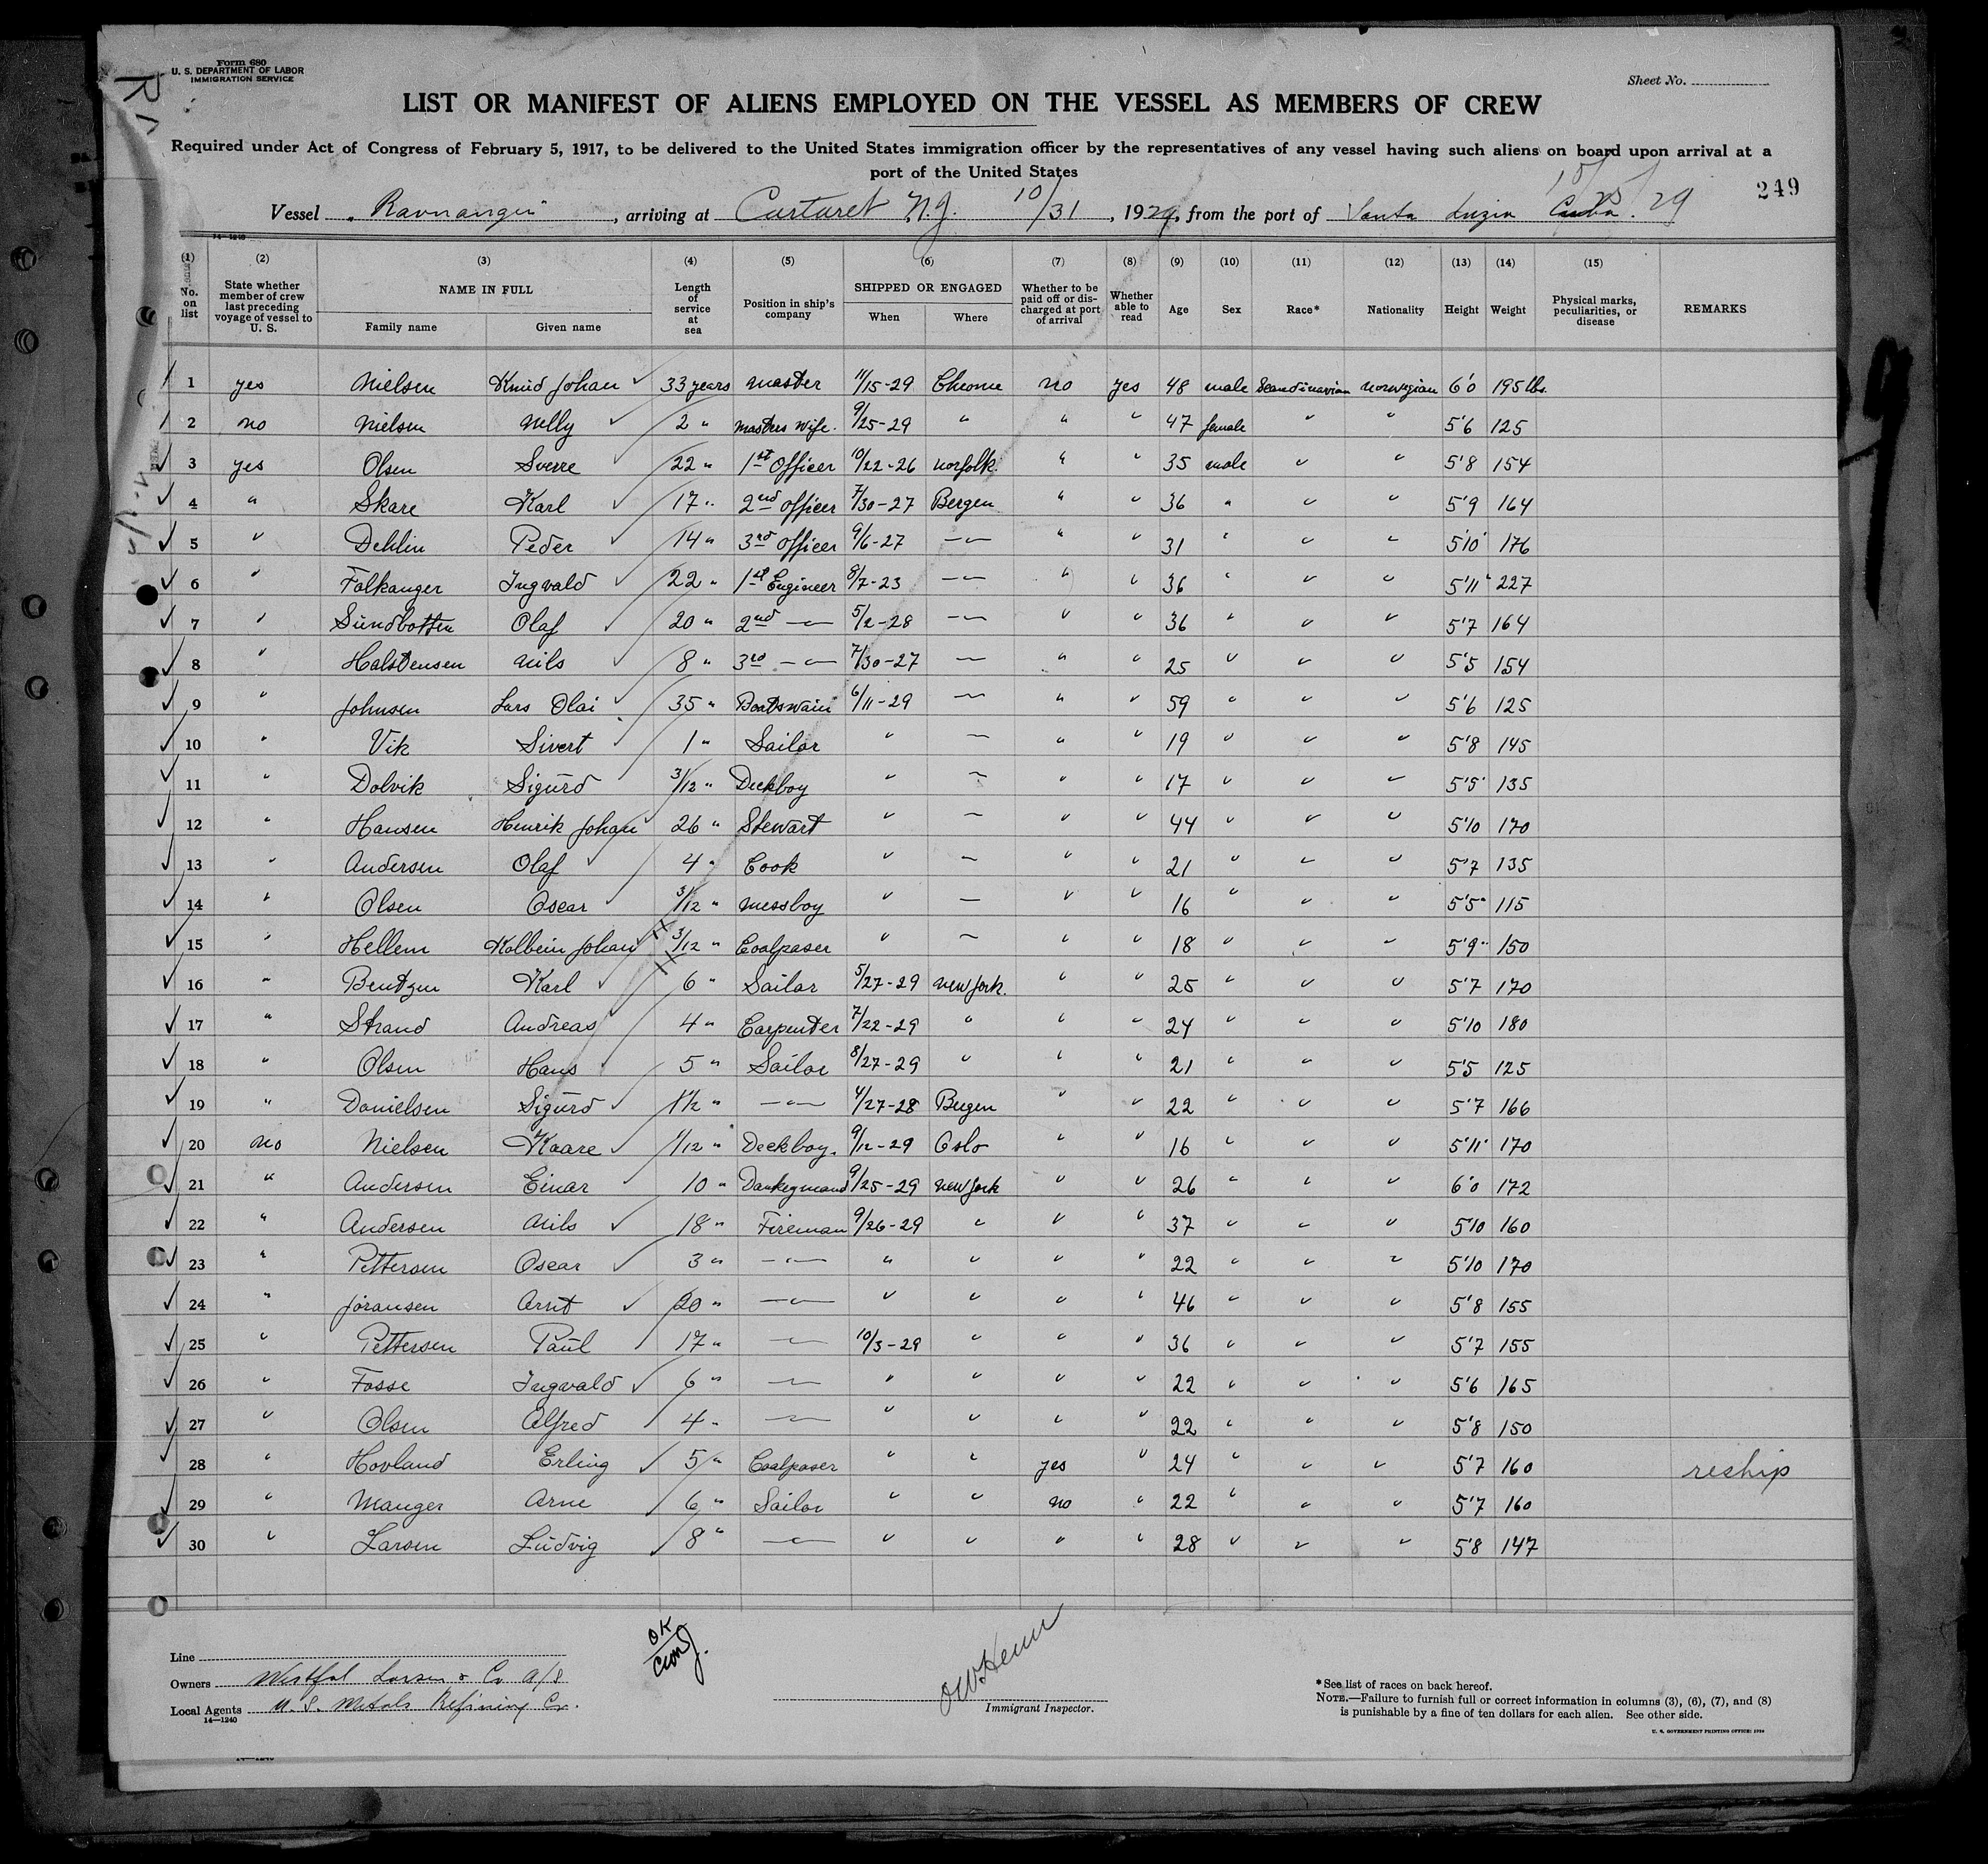 Form 680
U. S. DEPARTMENT OF LABOR
IMMIGRATION SERVICE
Sheet No.
LIST OR MANIFEST OF ALIENS EMPLOYED ON THE VESSEL AS MEMBERS OF CREW
Required under Act of Congress of February 5, 1917, to be delivered to the United States immigration officer by the representatives of any vessel having such aliens on board upon arrival at a
port of the United States
249
Vessel "Ravnanger", arriving at Cartaret N.J. 10/31, 1929, from the port of Santa Luzia Cuba. 10/25/29
14-1240
(1) (2) (3) (4) (5) (6) (7) (8) (9) (10) (11) (12) (13) (14) (15)
No. on list | State whether member of crew last preceding voyage of vessel to U. S. | NAME IN FULL Family name Given name | Length of service at sea | Position in ship's company | SHIPPED OR ENGAGED When Where | Whether to be paid off or discharged at port of arrival | Whether able to read | Age | Sex | Race* | Nationality | Height | Weight | Physical marks, peculiarities, or disease | REMARKS
1 yes Nielsen Knud Johan 33 years master 11/15-29 no yes 48 male Scandinavian norwegian 6'0 195 lbs.
2 no Nielsen Nelly 2 " masters wife. 9/25-29 " " " 47 female " " 5'6 125
3 yes Olsen Sverre 22 " 1st Officer 10/22-26 norfolk. " " 35 male " " 5'8 154
4 " Skare Karl 17 " 2nd Officer 7/30-27 Bergen " " 36 " " " 5'9 164
5 " Dehlin Peder 14 " 3rd Officer 9/6-27 -"- " " 31 " " " 5'10 176
6 " Falkanger Ingvald 22 " 1st Engineer 8/7-23 -"- " " 36 " " " 5'11 227
7 " Sundbotten Olaf 20 " 2nd -"- 5/2-28 -"- " " 36 " " " 5'7 164
8 " Halstensen Nils 8 " 3rd -"- 7/30-27 -"- " " 25 " " " 5'5 154
9 " Johnsen Lars Olai 35 " Boatswain 6/11-29 -"- " " 59 " " " 5'6 125
10 " Vik Sivert 1 " Sailor " -"- " " 19 " " " 5'8 145
11 " Dolvik Sigurd 3/12 " Deckboy " -"- " " 17 " " " 5'5 135
12 " Hansen Henrik Johan 26 " Stewart " -"- " " 44 " " " 5'10 170
13 " Andersen Olaf 4 " Cook " -"- " " 21 " " " 5'7 135
14 " Olsen Oscar 3/12 " messboy " -"- " " 16 " " " 5'5 115
15 " Hellem Kolbein Johan 3/12 " Coalpaser " -"- " " 18 " " " 5'9 150
16 " Bentzen Karl 6 " Sailor 5/27-29 new york. " " 25 " " " 5'7 170
17 " Strand Andreas 4 " Carpenter 7/22-29 " " " 24 " " " 5'10 180
18 " Olsen Hans 5 " Sailor 8/27-29 " " " 21 " " " 5'5 125
19 " Danielsen Sigurd 1½ " -"- 4/27-28 Bergen " " 22 " " " 5'7 166
20 no Nielsen Kaare 1/12 " Deckboy. 9/12-29 Oslo " " 16 " " " 5'11 170
21 " Andersen Einar 10 " Dankeymand 9/25-29 new york " " 26 " " " 6'0 172
22 " Andersen Nils 18 " Fireman 9/26-29 " " " 37 " " " 5'10 160
23 " Pettersen Oscar 3 " -"- " " " " 22 " " " 5'10 170
24 " Joransen Arnt 20 " -"- " " " " 46 " " " 5'8 155
25 " Pettersen Paul 17 " -"- 10/3-29 " " " 36 " " " 5'7 155
26 " Fosse Ingvald 6 " -"- " " " " 22 " " " 5'6 165
27 " Olsen Alfred 4 " -"- " " " " 22 " " " 5'8 150
28 " Hovland Erling 5 " Coalpaser " " yes " 24 " " " 5'7 160 reship
29 " Manger Arne 6 " Sailor " " no " 22 " " " 5'7 160
30 " Larsen Ludvig 8 " -"- " " " " 28 " " " 5'8 147
OK
Line
Owners Westfal Larsen & Co A/S
Local Agents U. S. Metals Refining Co.
14-1240
Immigrant Inspector.
* See list of races on back hereof.
NOTE.—Failure to furnish full or correct information in columns (3), (6), (7), and (8)
is punishable by a fine of ten dollars for each alien. See other side.
U. S. GOVERNMENT PRINTING OFFICE: